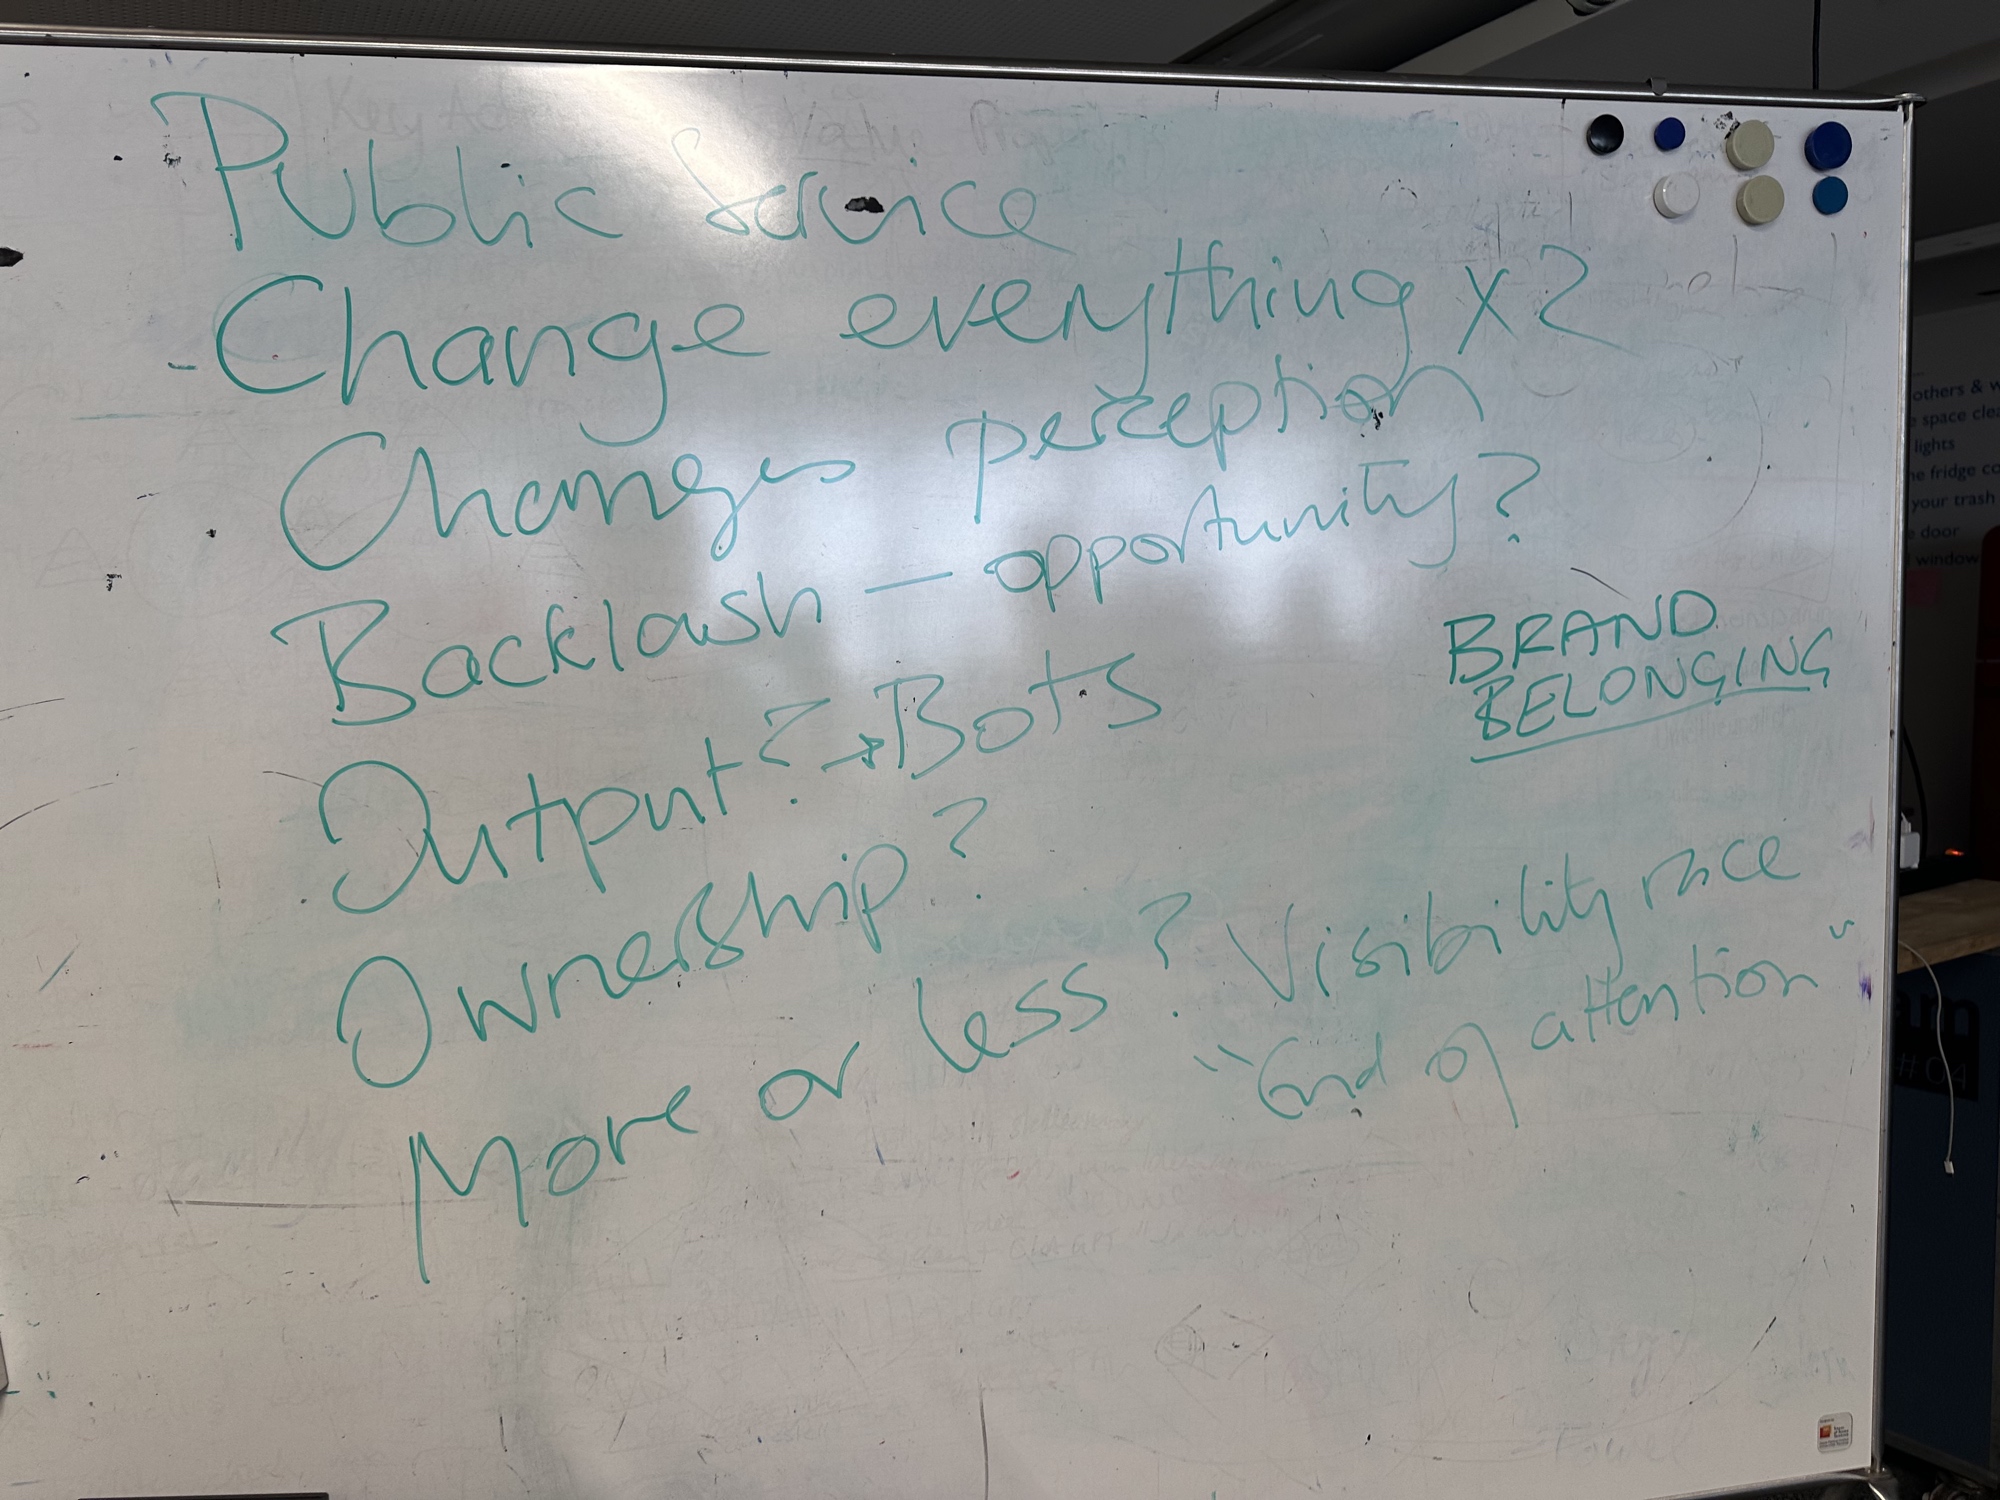 Public Service
- Change everything x2
Changes perception
Backlash — opportunity?
BRAND
BELONGING
Output? → Bots
Ownership?
More or less? Visibility race
"End of attention"
Key Ac
Value Prop
others & w
space clea
lights
e fridge co
your trash
door
window
am
#04